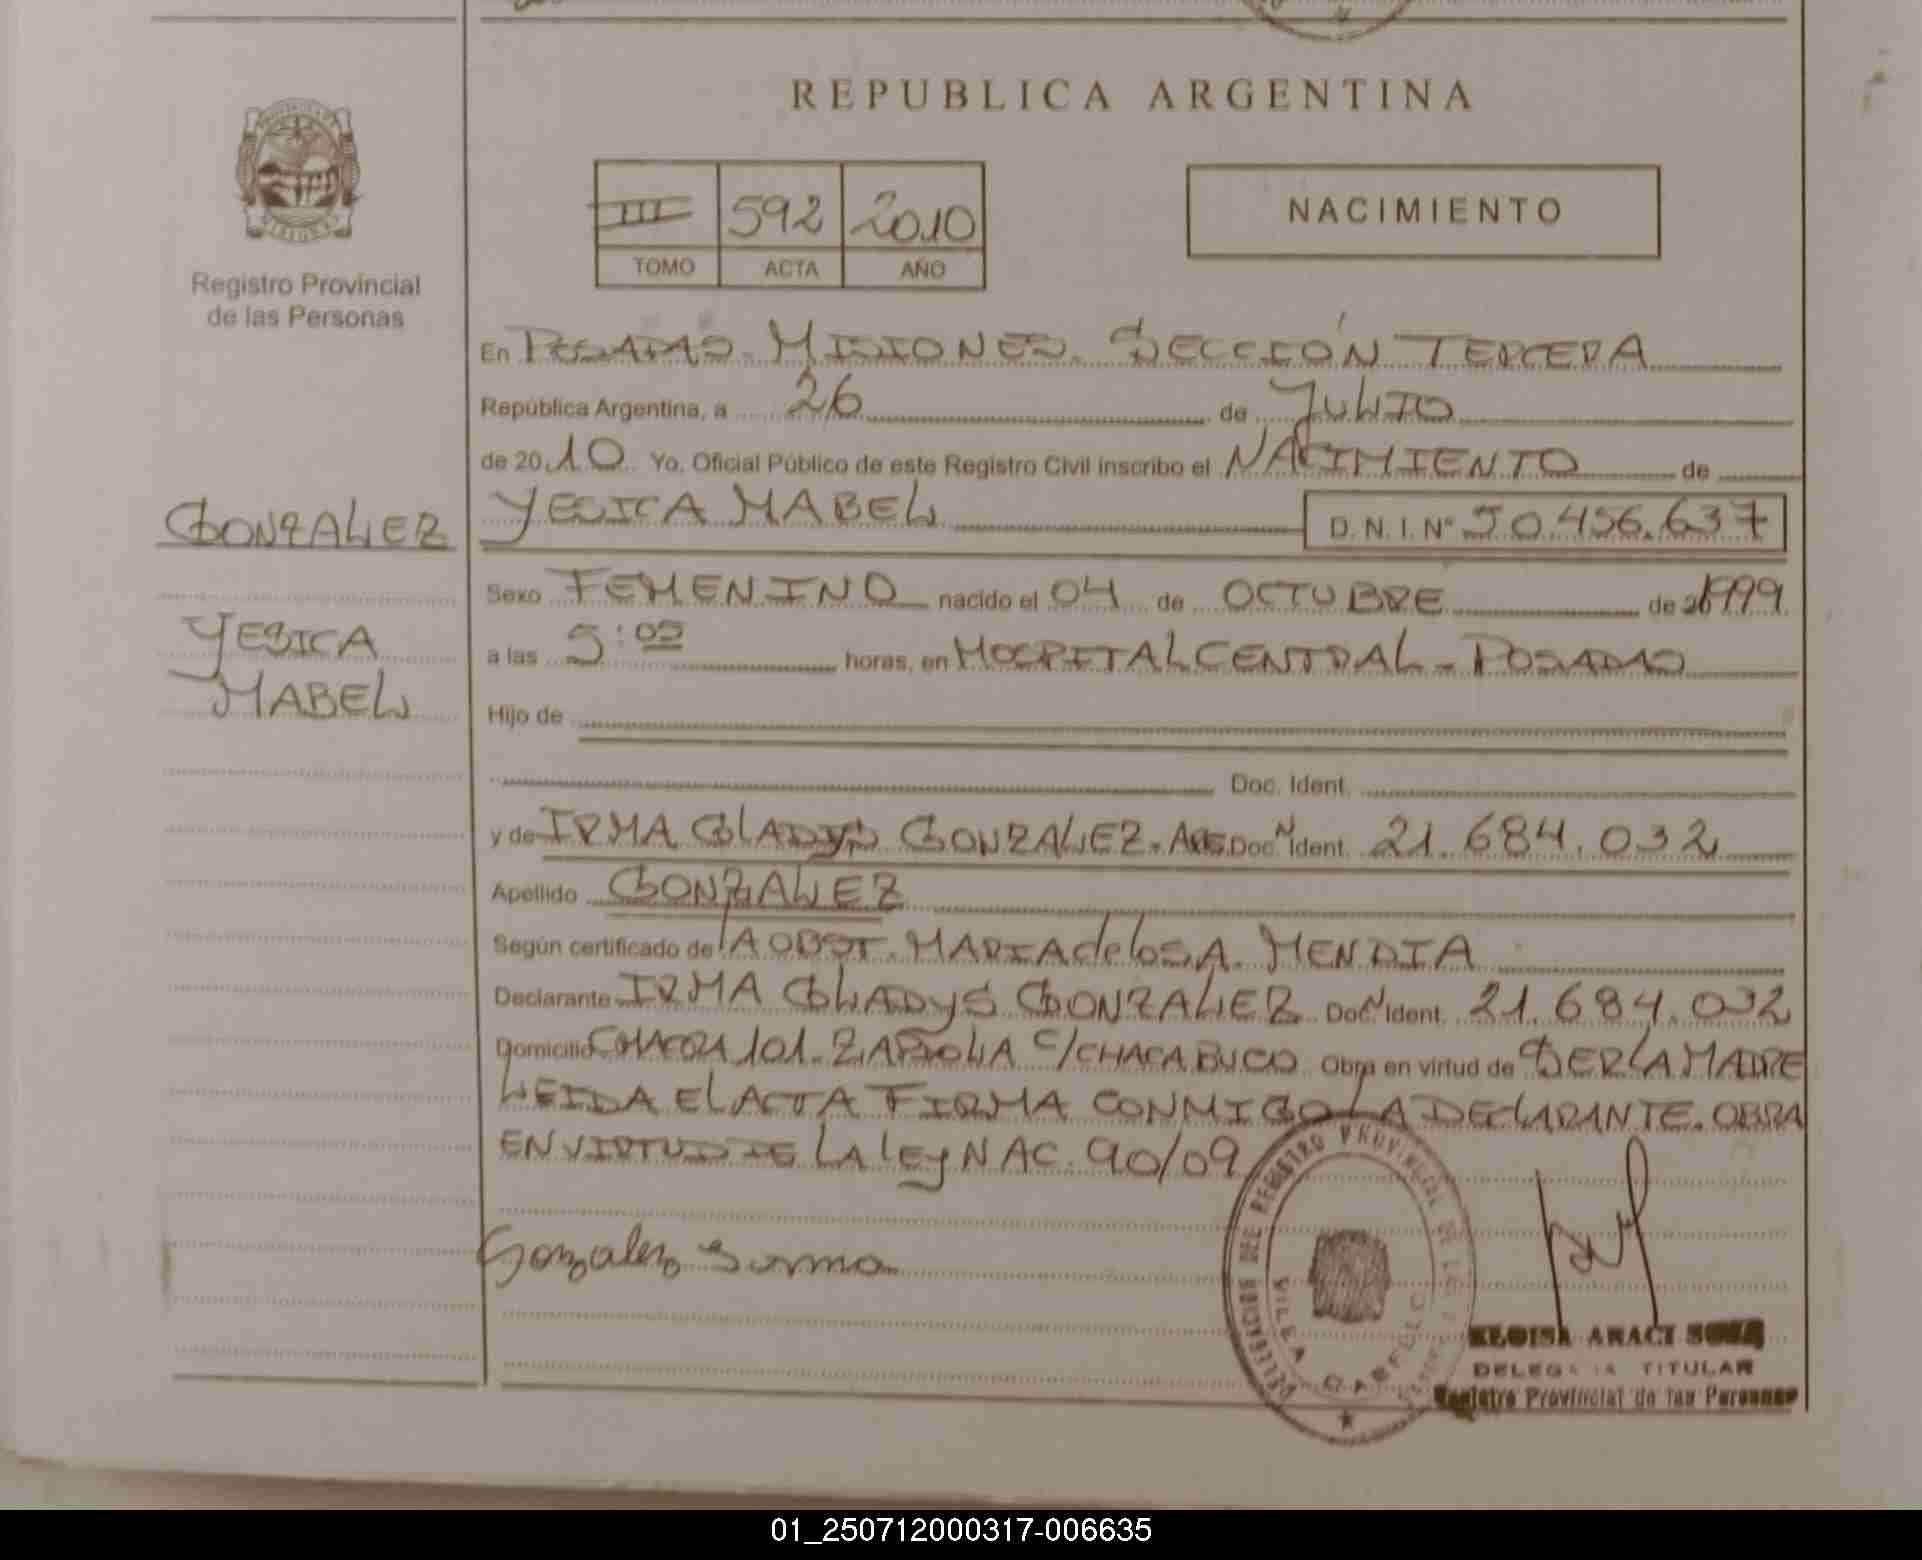 REPUBLICA ARGENTINA
III 592 2010
TOMO ACTA AÑO
NACIMIENTO
Registro Provincial
de las Personas
En POSADAS. MISIONES. SECCIÓN TERCERA
República Argentina, a 26 de JULIO
de 2010 Yo, Oficial Público de este Registro Civil inscribo el NACIMIENTO de
GONZALEZ
YESICA MABEL D. N. I. N° 50.456.637
YESICA
MABEL
Sexo FEMENINO nacido el 04 de OCTUBRE de 1999
a las 5:05 horas, en HOSPITAL CENTRAL - POSADAS
Hijo de
Doc. Ident.
y de IRMA GLADYS GONZALEZ. ARG. Doc. N Ident. 21.684.032
Apellido GONZALEZ
Según certificado de LA OBST. MARIA de los A. MENDIA
Declarante IRMA GLADYS GONZALEZ Doc. N Ident. 21.684.032
Domicilio CHACRA 101. C/CHACABUCO Obra en virtud de SER LA MADRE
LEIDA EL ACTA FIRMA CONMIGO LA DECLARANTE. OBRA
EN VIRTUD DE LA LEY NAC. 90/09
Gonzalez Irma
DELEGACION DEL REGISTRO PROVINCIAL DE LAS
VILLA CABELLO
ELOISA ARACI SOSA
DELEGADA TITULAR
Registro Provincial de las Personas
01_250712000317-006635